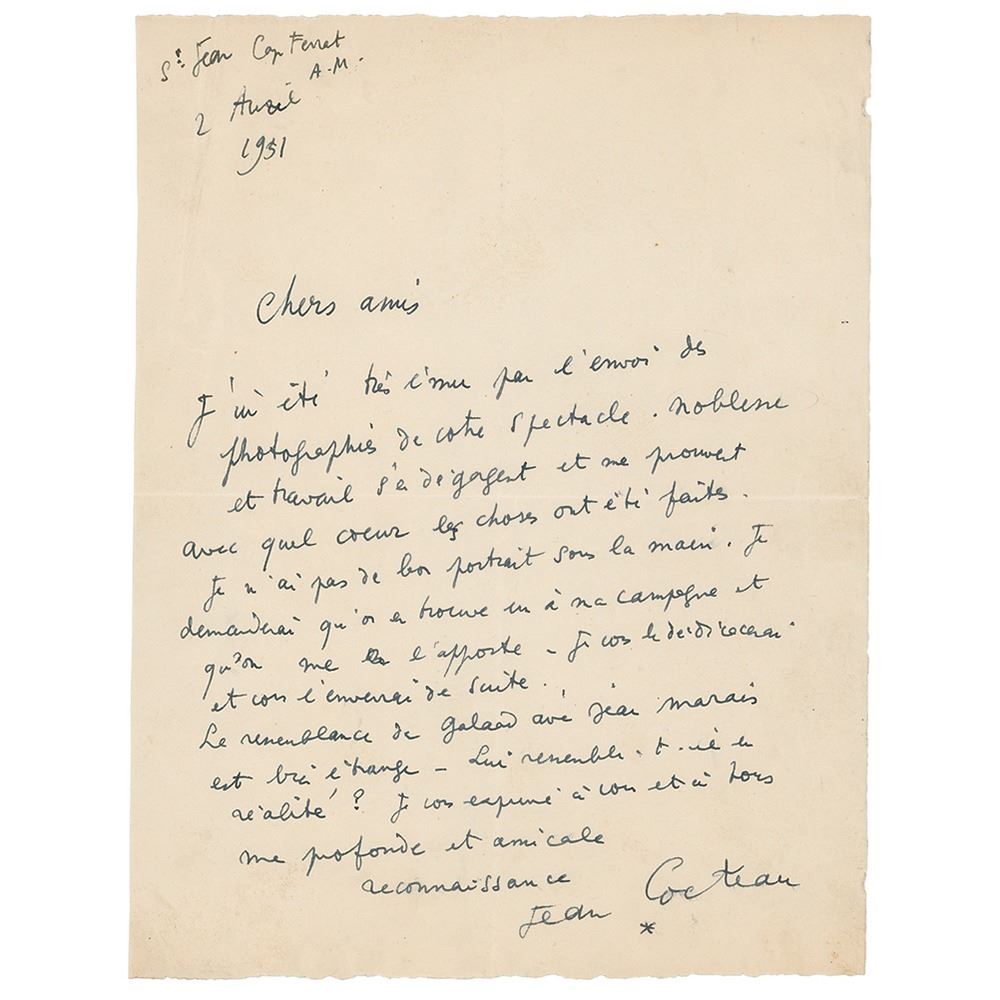 St Jean Cap Ferrat
A.M.
2 Avril
1951
Chers amis
J'ai été très ému par l'envoi des
photographies de votre spectacle. noblesse
et travail s'en dégagent et me prouvent
avec quel coeur les choses ont été faites.
Je n'ai pas de bon portrait sous la main. Je
demanderai qu'on en trouve un à ma campagne et
qu'on me l'apporte - Je vous le dédicacerai
et vous l'enverrai de suite.
La ressemblance de Galaad avec Jean Marais
est bien étrange - Lui ressemble-t-il en
réalité? Je vous exprime à vous et à tous
ma profonde et amicale
reconnaissance
Jean Cocteau
*